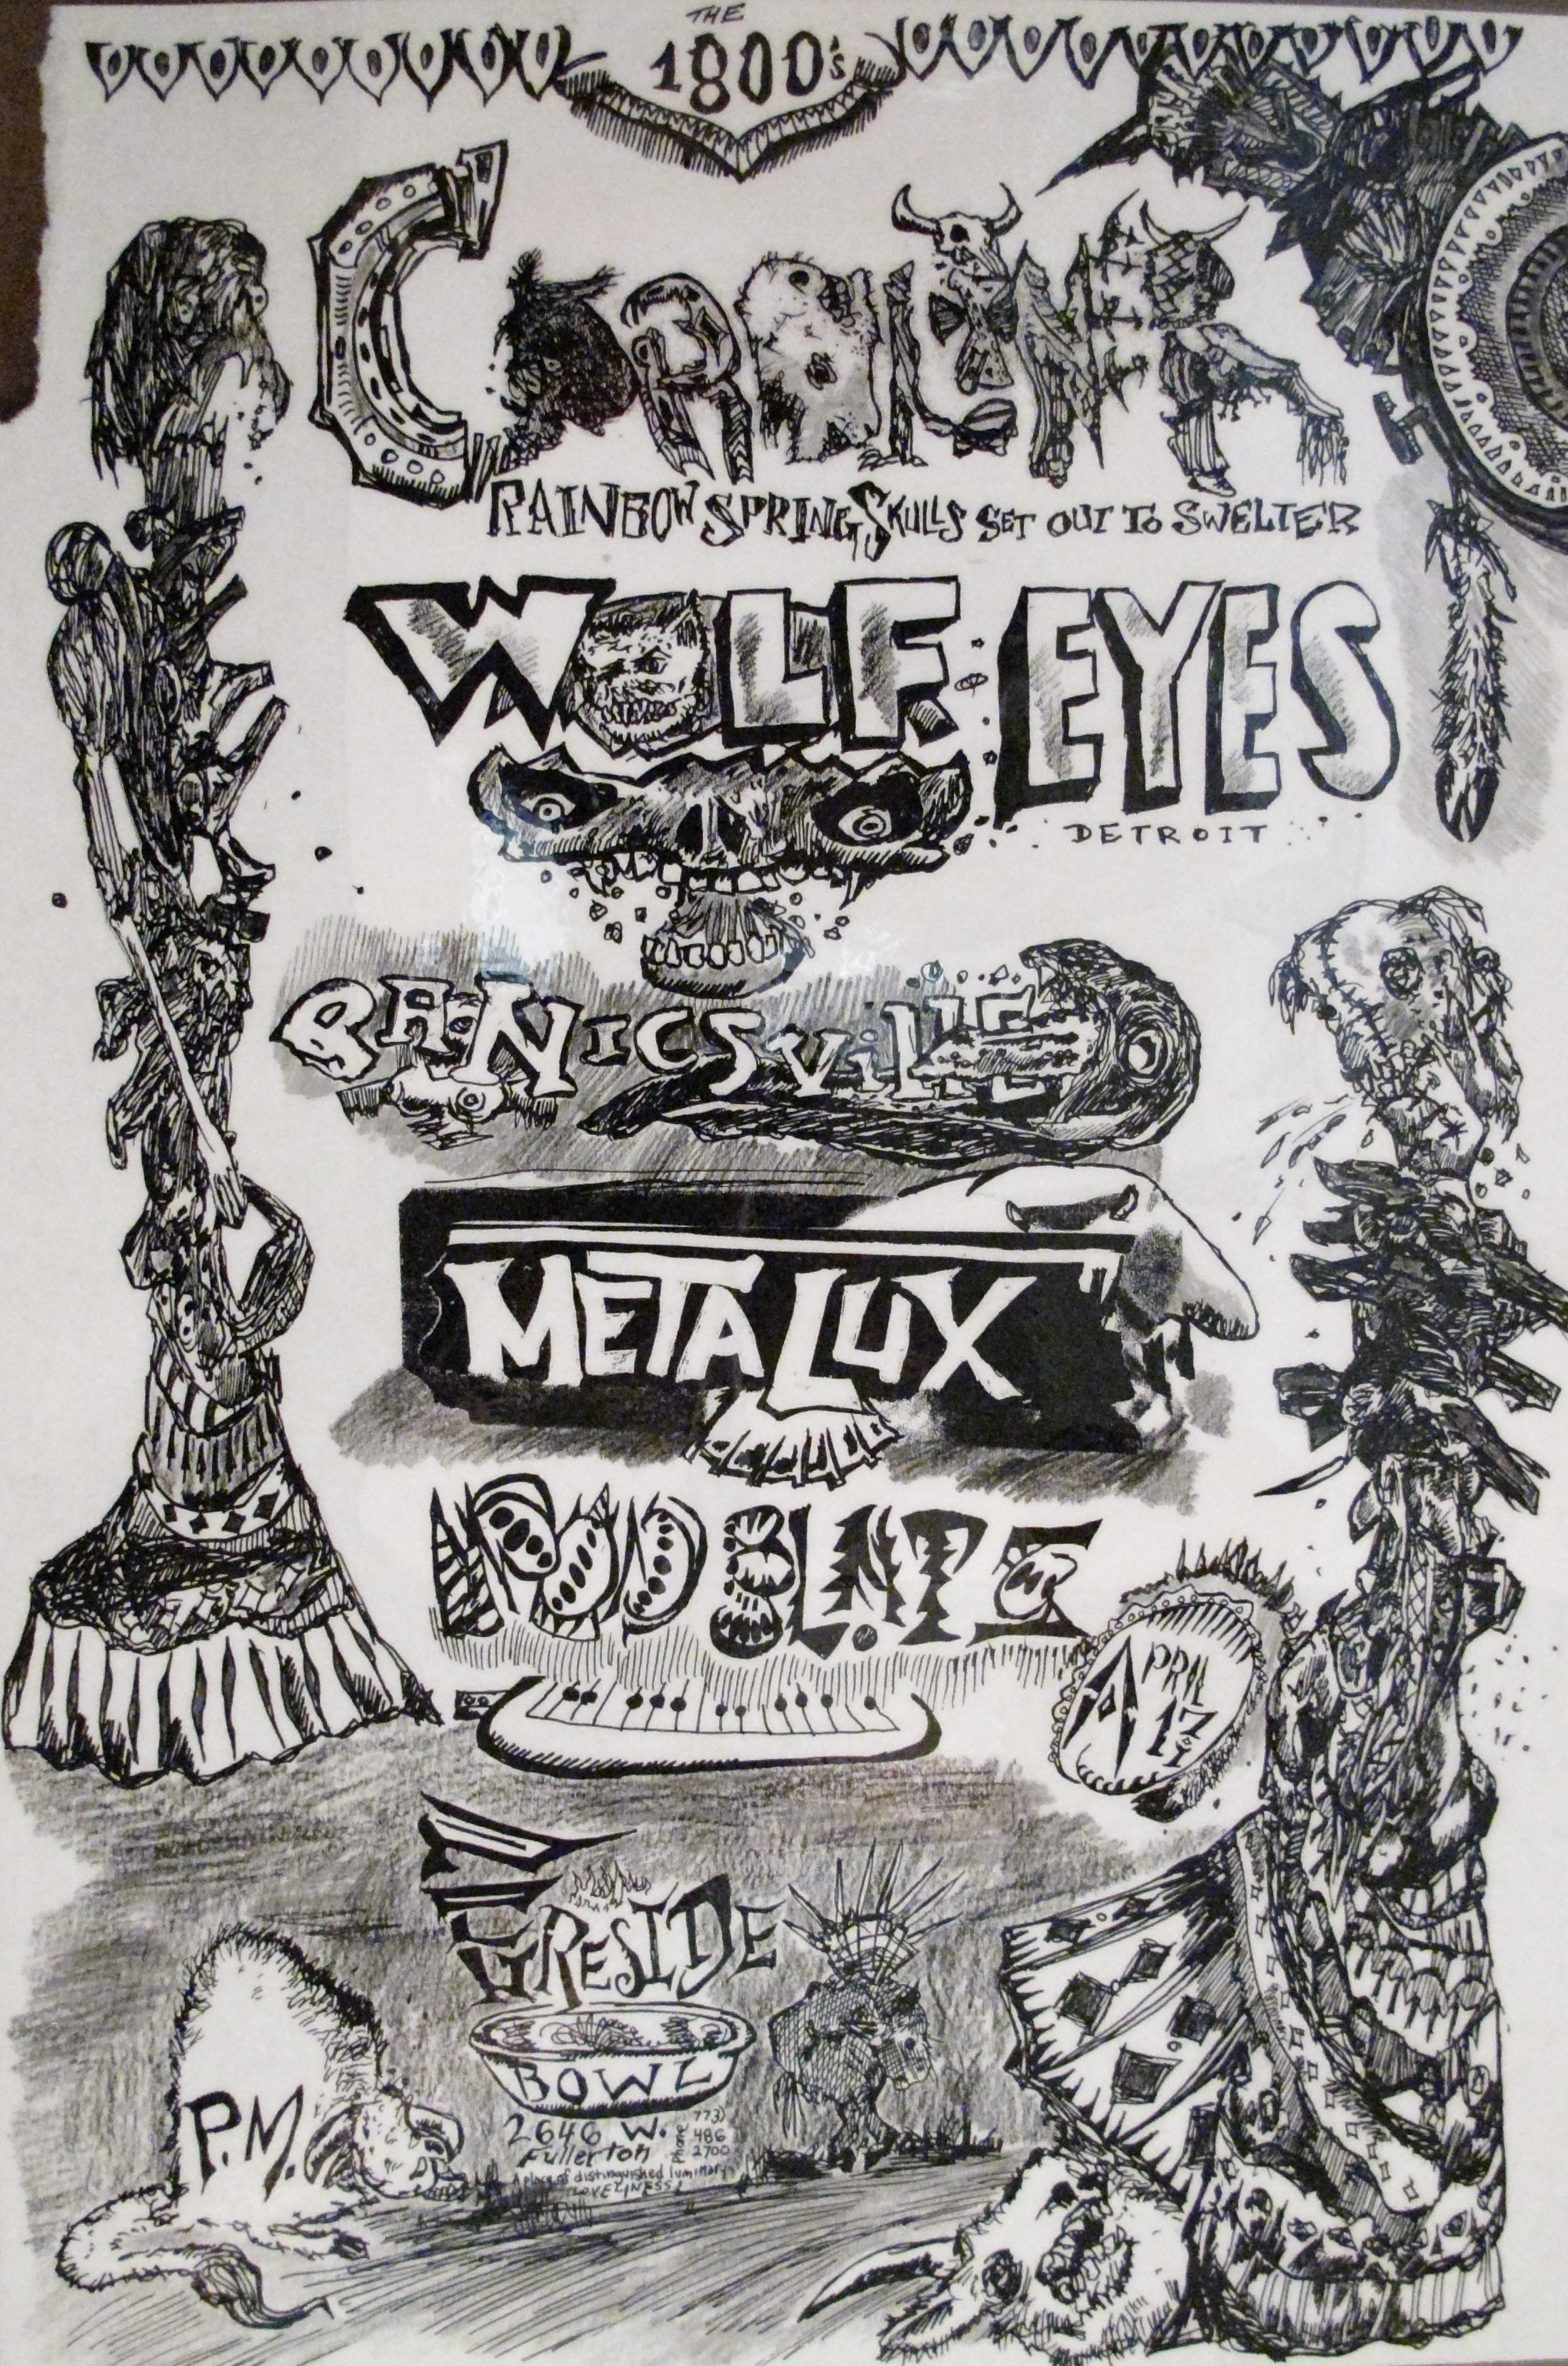 THE
1800's
RAINBOW SPRING SKULLS SET OUT TO SWELTER
WOLF EYES
DETROIT
PANICSVILLE
METALUX
POD BLOTZ
APRIL
FIRESIDE
BOWL
2646 W.
Fullerton
Phone 773)
486
2700
A place of distinguished luminary
LOVELINESS!
P.M.